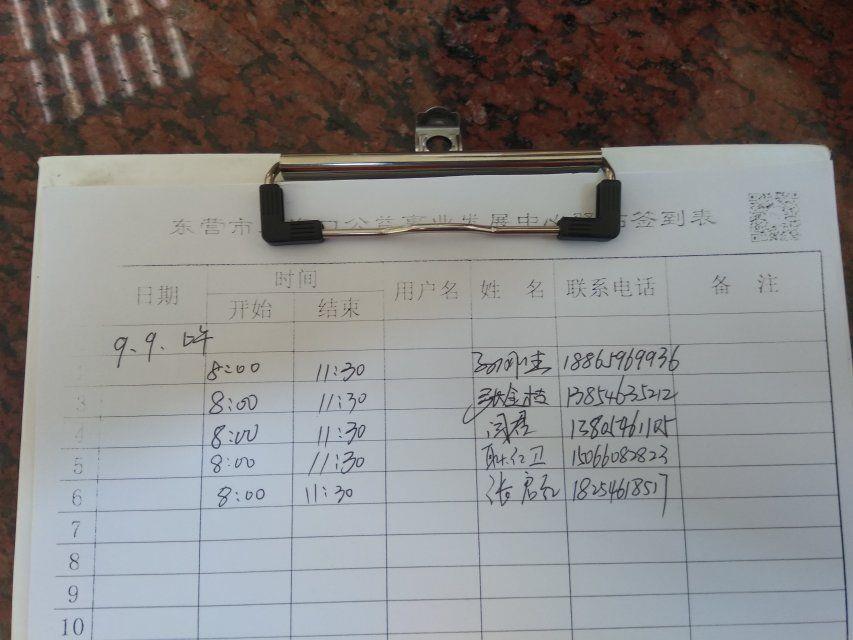 东营市 公益事业发展中心 签到表
日期 时间 用户名 姓 名 联系电话 备 注
开始 结束
9.9.
8:00 11:30 18865969936
3 8:00 11:30 张金枝 13854635212
4 8:00 11:30 闫君 13805461105
5 8:00 11:30 耿红卫 15066082823
6 8:00 11:30 18254618517
7
8
9
10